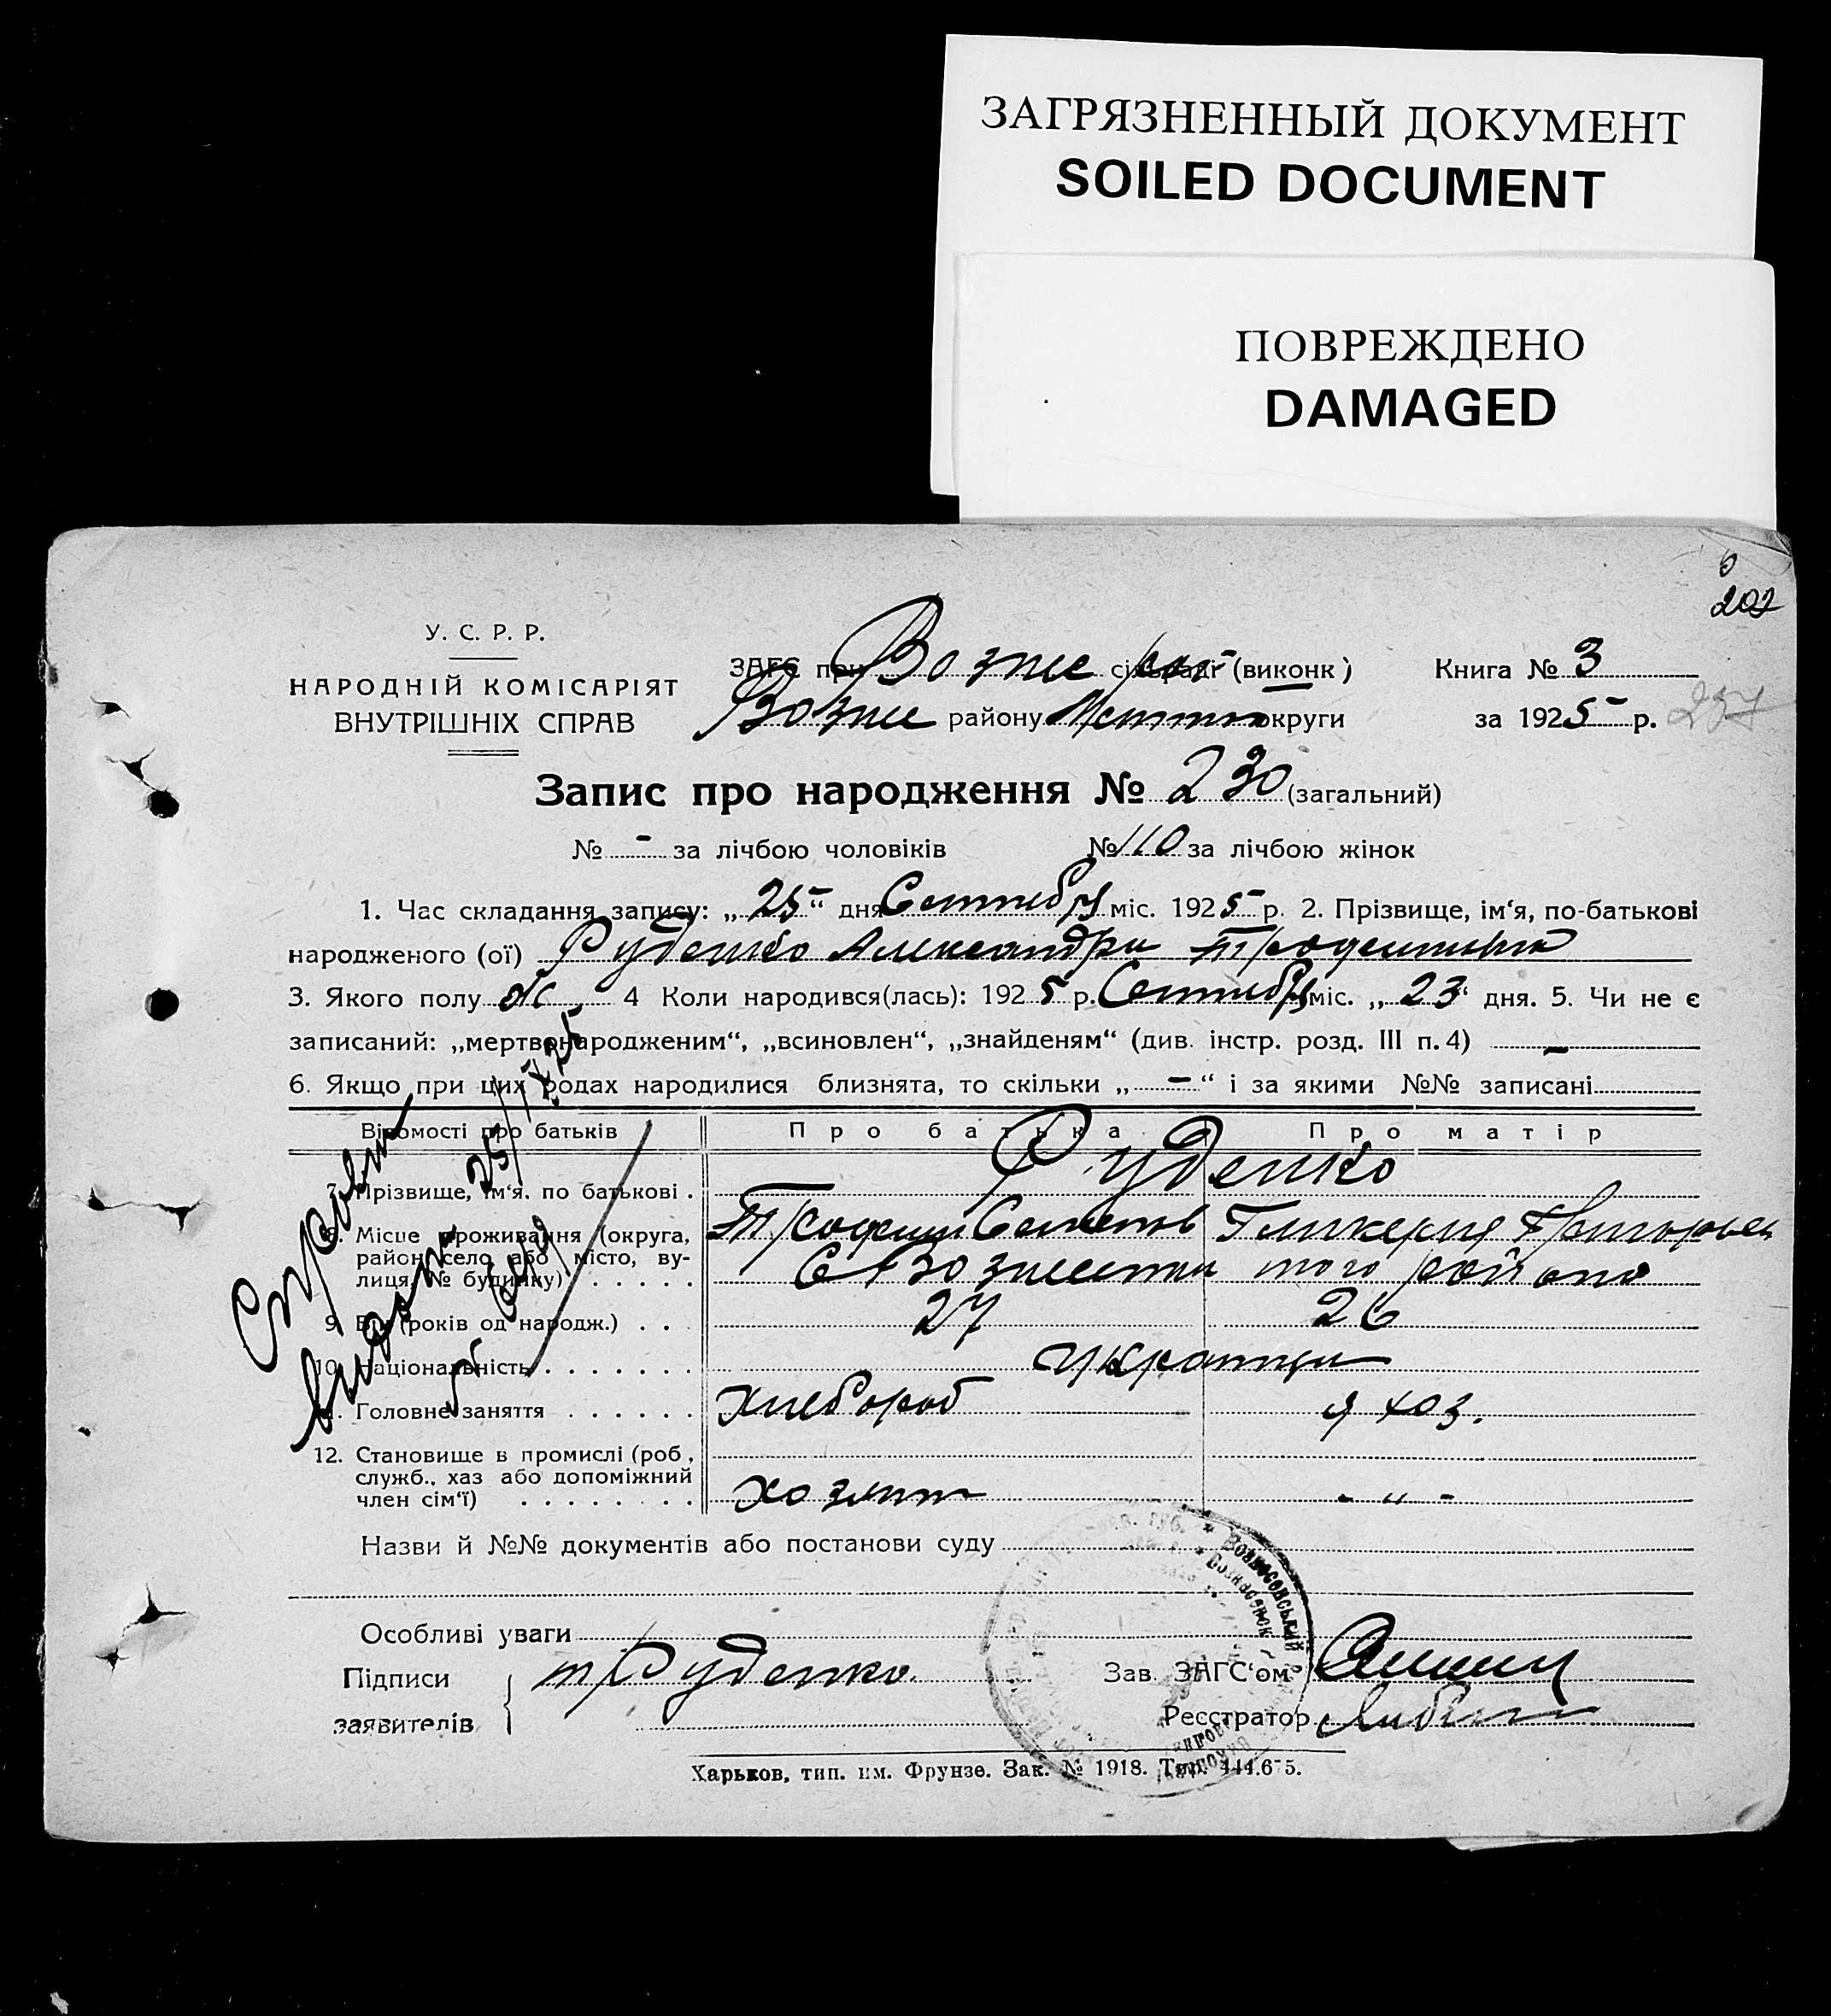 ЗАГРЯЗНЕННЫЙ ДОКУМЕНТ
SOILED DOCUMENT
ПОВРЕЖДЕНО
DAMAGED
202
У. С. Р. Р.
НАРОДНІЙ КОМІСАРІЯТ
ВНУТРІШНІХ СПРАВ
ЗАГС при Возне рай сільраді (виконк)
Книга № 3
Возне району округи
за 1925 р. 237
Запис про народження № 230 (загальний)
№ - за лічбою чоловіків № 110 за лічбою жінок
1. Час складання запису: „25“ дня Сентября міс. 1925 р. 2. Прізвище, ім‘я, по-батькові
народженого (ої) Руденко Александра
3. Якого полу ж 4 Коли народився(лась): 1925 р. Сентября міс. „23“ дня. 5. Чи не є
записаний: „мертвонародженим“, „всиновлен“, „знайденям“ (див. інстр. розд. III п. 4) —
6. Якщо при цих родах народилися близнята, то скільки „—“ і за якими №№ записані
Відомості про батьків Про батька Про матір
7. Прізвище, ім‘я, по батькові . Руденко
Трофим Семенов Гликерия Григорьев
8. Місце проживання (округа,
район, село або місто, ву-
лиця, № будинку) С Вознесенки того района
9. Вік (років од народж.) . . . 27 26
10. Національність украинцы
11. Головне заняття хлебороб д хоз.
12. Становище в промислі (роб.,
служб., хаз або допоміжний
член сім‘ї) хозяин - „ -
Справка
выдана 25/IX 25
Назви й №№ документів або постанови суду
Особливі уваги
Підписи
заявителів
т Руденко.
Зав. ЗАГС‘ом
Реєстратор
Вознесенський
Харьков, тип. им. Фрунзе. Зак. № 1918. Тир.